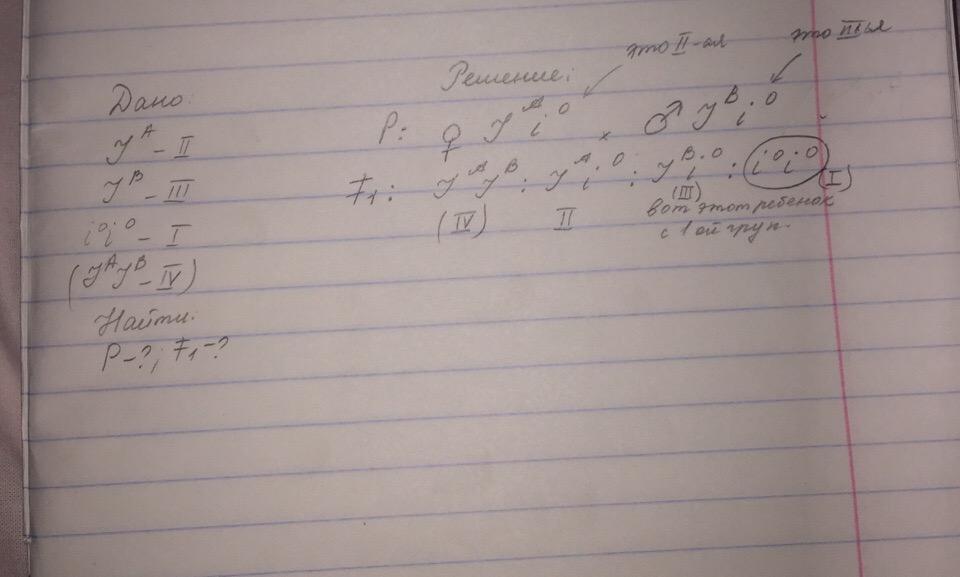 это II-ая
это III-ья
Дано:
Решение:
J^A - II
P: ♀ J^A i^0 × ♂ J^B i^0
J^B - III
F1: J^A J^B : J^A i^0 : J^B i^0 : i^0 i^0 (I)
(IV) II (III)
вот этот ребенок
с 1 ой груп.
i^0 i^0 - I
(J^A J^B - IV)
Найти:
P-?; F1-?